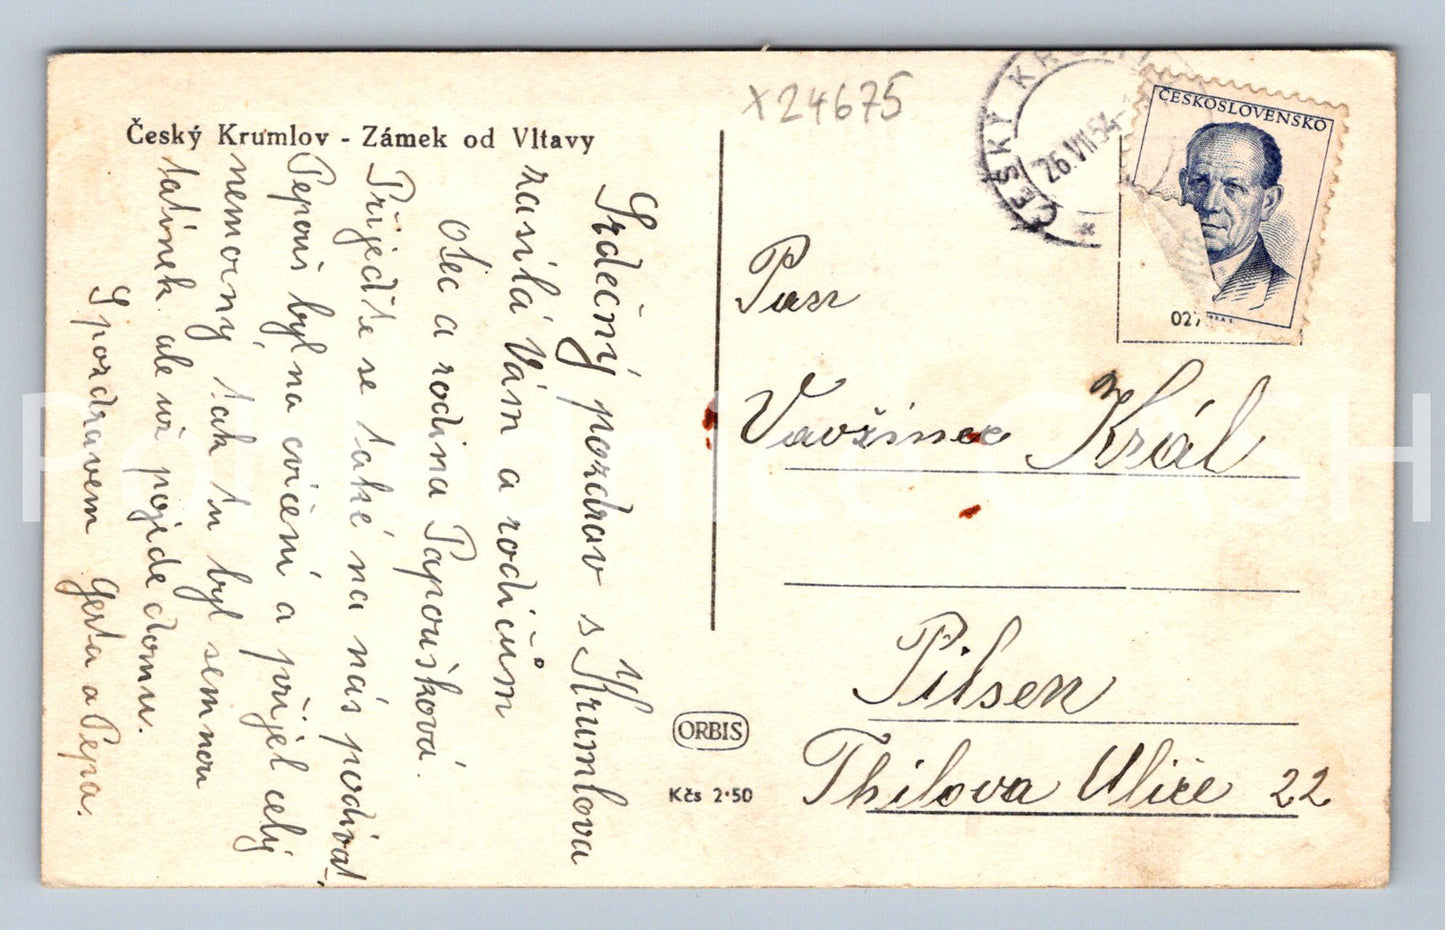 Český Krumlov - Zámek od Vltavy
X24675
ČESKÝ KRUML
26.VII.54
ČESKOSLOVENSKO
027
Srdečný pozdrav s Krumlova
zasílá Vám a rodičům
otec a rodina Papoušková.
Přijeďte se také na nás podívat,
Pepouš byl na cvičení a přijel celý
nemocný, tak tu byl sem nou
tatínek ale už pojede domu.
S pozdravem Gerta a Pepa.
Pan
Vavžinec Král
Pilsen
Thilova Uliče 22
ORBIS
Kčs 2·50